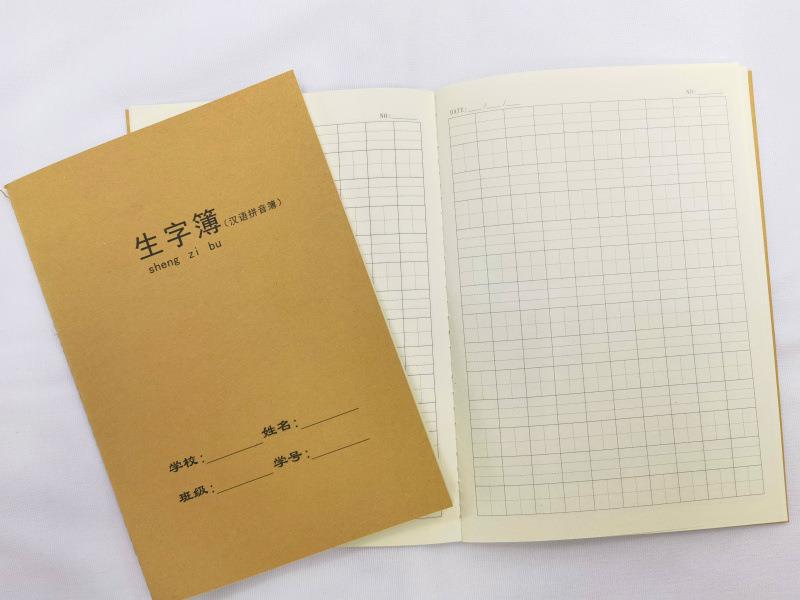 生字簿(汉语拼音簿)
sheng zi bu
学校:________ 姓名:________
班级:________ 学号:________
NO:________
DATE:____/____/____ NO:________